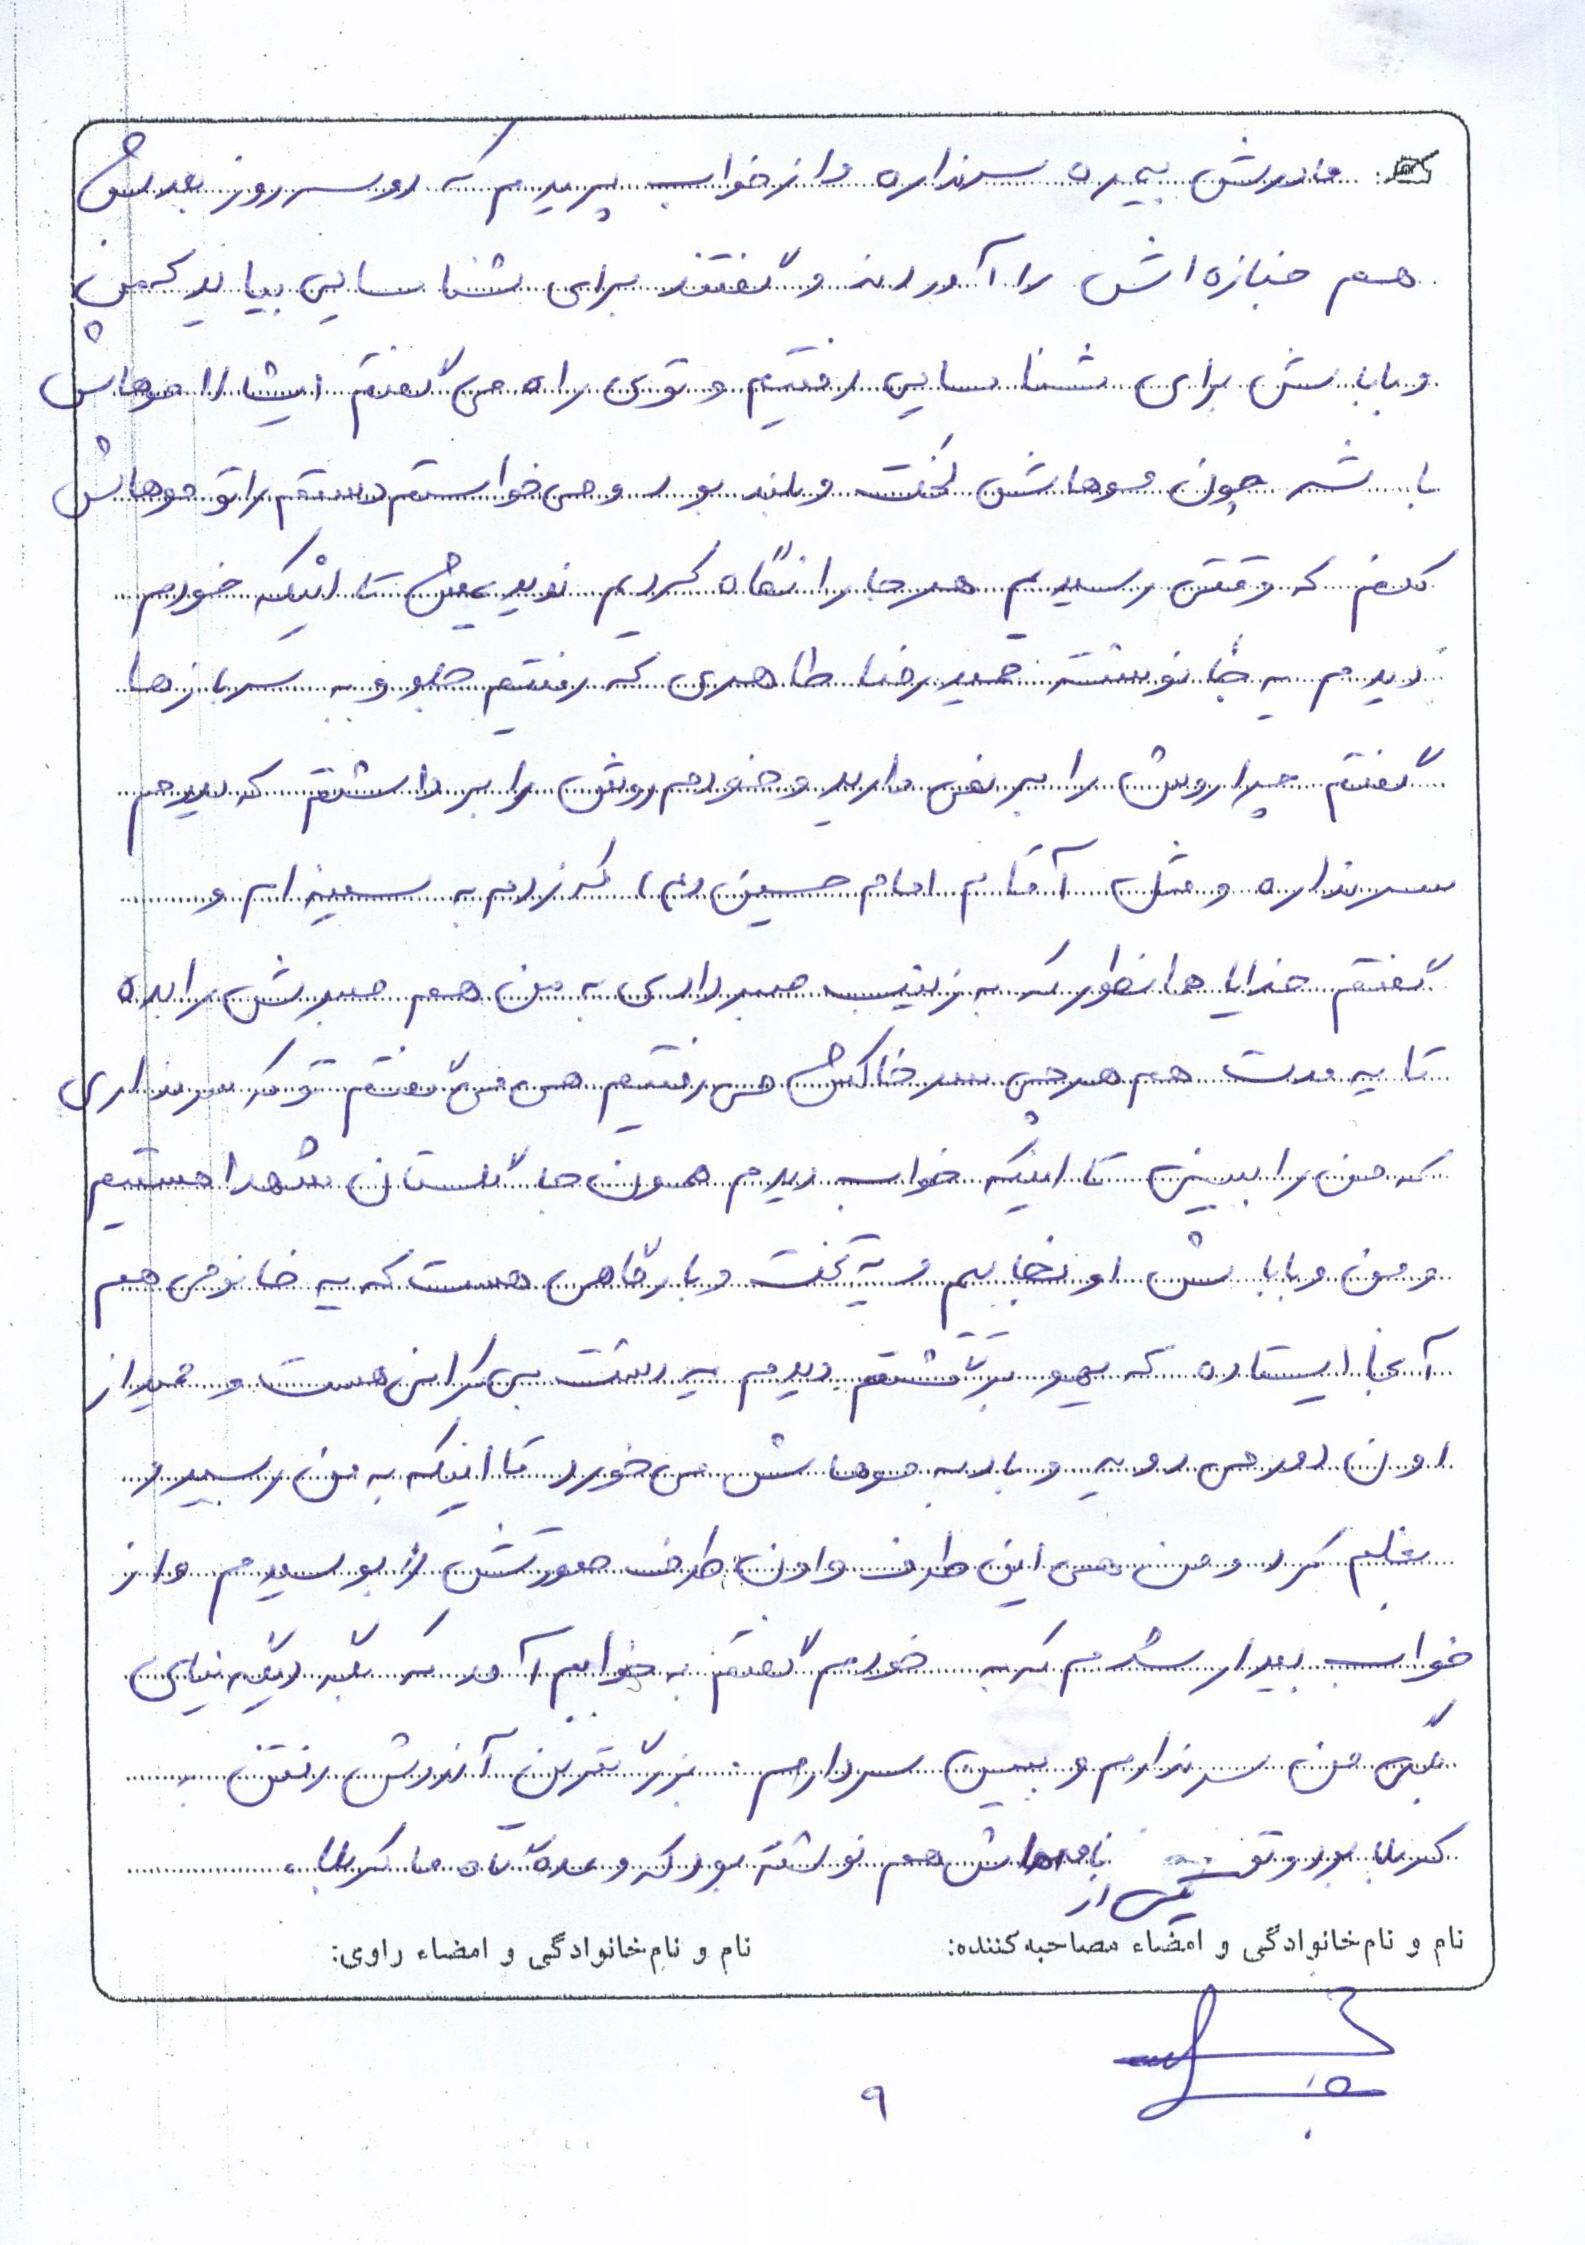 مادرش بمیره سر نداره و از خواب پریدم که دو سه روز بعدش
هم جنازه‌اش را آوردند و گفتند برای شناسایی بیایید که من
و باباش برای شناسایی رفتیم و توی راه می‌گفتم ایشالا موهاش
باشه چون موهاش لخت و بلند بود و می‌خواستم دستم را تو موهاش
کنم که وقتی رسیدیم هر جا را نگاه کردیم ندیدیمش تا اینکه خودم
دیدم یه جا نوشته حمیدرضا طاهری که رفتیم جلو و به سربازها
گفتم چرا روش را بر نمی‌دارید و خودم روش را برداشتم که دیدم
سر نداره و مثل آقام امام حسین (ع)، که زدم به سینه‌ام و
گفتم خدایا همانطور که به زینب صبر دادی به من هم صبرش را بده
تا یه مدت هم هر چی سر خاکش می‌رفتیم هی می‌گفتم تو که سر نداری
که من را ببینی تا اینکه خواب دیدم همون جا گلستان شهدا هستیم
و من و باباش اونجاییم و یه تخت و بارگاهی هست که یه خانومی هم
آنجا ایستاده که یهو برگشتم دیدم یه دشت بی‌کرانی هست و حمید از
اون دور می‌دویه و باد به موهاش می‌خورد تا اینکه به من رسید و
بغلم کرد و من هی این طرف و اون طرف صورتش را بوسیدم و از
خواب بیدار شدم که به خودم گفتم به خوابم آمد که بگه دیگه نیای
بگی من سر ندارم و ببین سر دارم. بزرگترین آرزوش رفتن به
کربلا بود و توی یکی از نامه‌هاش هم نوشته بود که وعده‌گاه ما کربلا.
نام و نام خانوادگی و امضاء مصاحبه‌کننده: نام و نام خانوادگی و امضاء راوی:
۹